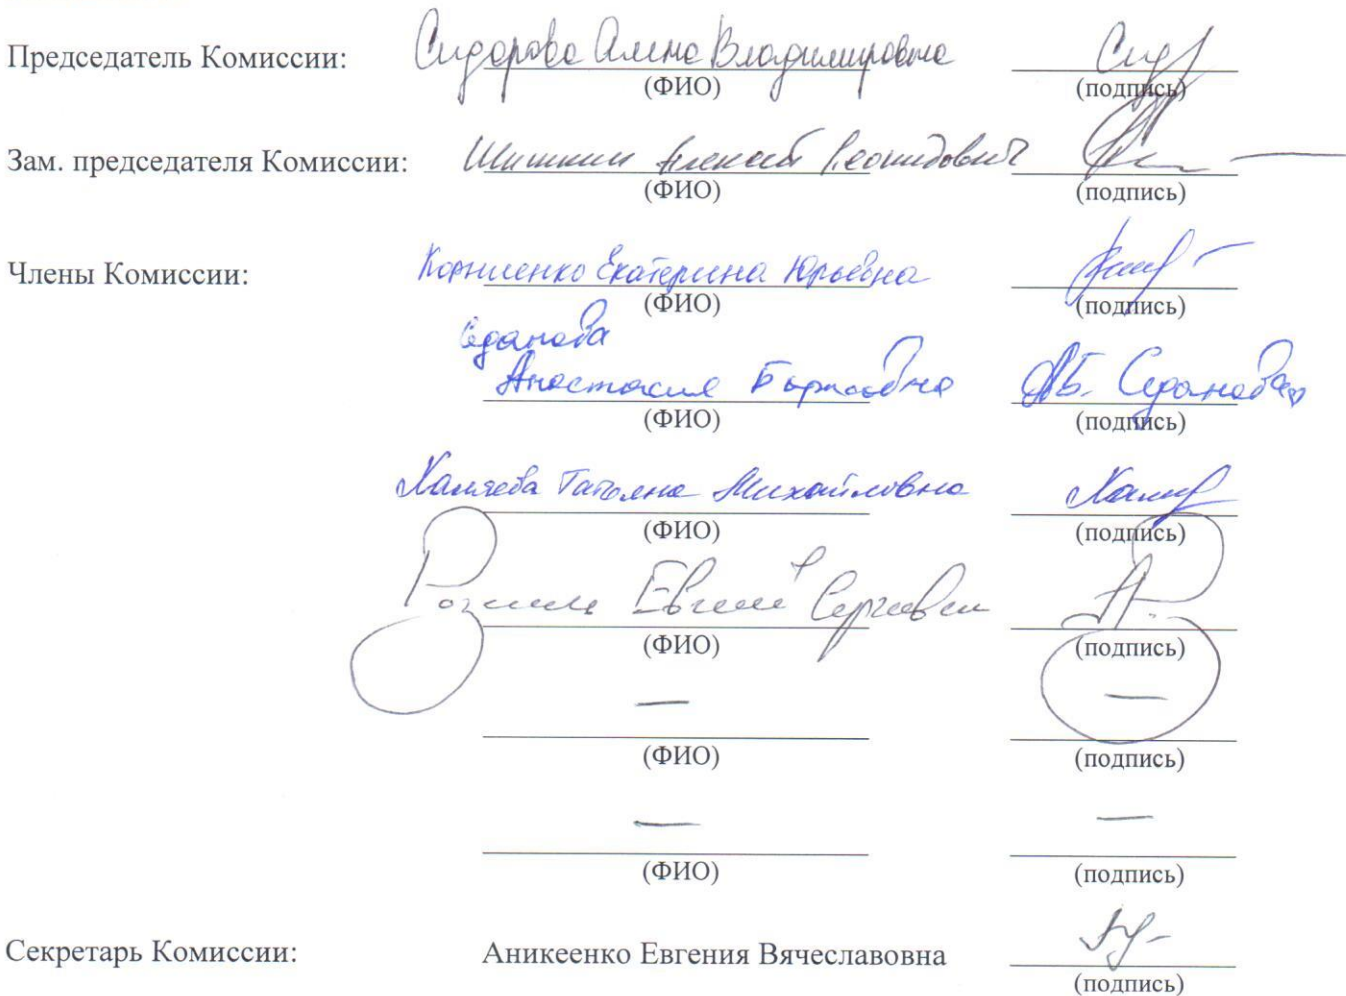 Председатель Комиссии: Сидорова Алина Владимировна Сид
(ФИО) (подпись)
Зам. председателя Комиссии: Шишкин Алексей Леонидович
(ФИО) (подпись)
Члены Комиссии: Корниенко Екатерина Юрьевна
(ФИО) (подпись)
Седанова
Анастасия Борисовна АБ. Седанова
(ФИО) (подпись)
Халяева Татьяна Михайловна
(ФИО) (подпись)
Евгений Сергеевич
(ФИО) (подпись)
— —
(ФИО) (подпись)
— —
(ФИО) (подпись)
Секретарь Комиссии: Аникеенко Евгения Вячеславовна
(подпись)